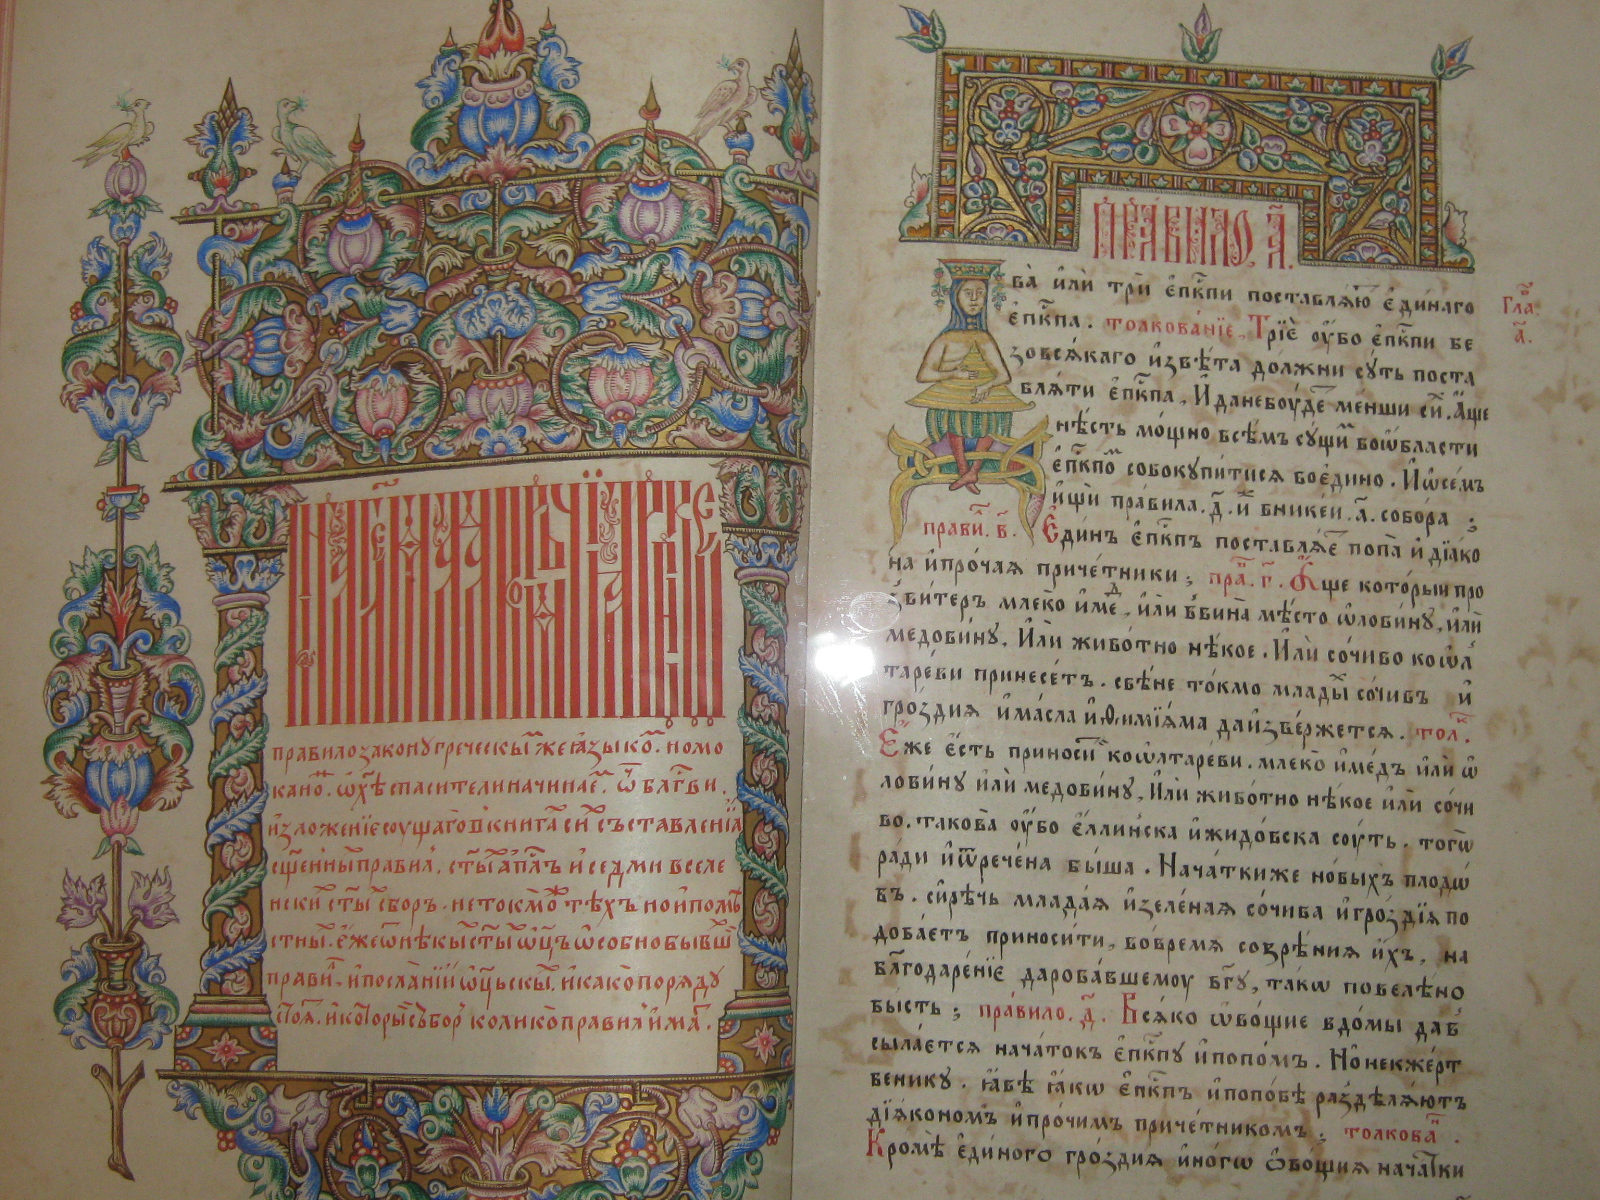 правило закону греческы҇ же ꙗзыко҇ . номо
кано҇ . ѡ хс҃ѣ спасители начинае҇ . ѿ бл҃гви .
и҆зложенїе сущаго в книга҇ си҇ съставленїꙗ
сщ҃енны҇ правил̾ . ст҃ы҇ ап҃лъ и҆ седми вселе
нски҇ ст҃ы҇ сбор . не токмо҇ тѣхъ но и҆ помѣ
стны҇ . е҆же ѿ нѣкы҇ ст҃ы҇ ѡ҃ц҃ъ ѡсобно бывш҇
прави҇ . и҆ посланїи ѡ҃цьскы҇ . и҆ како по ряду
стоя҇ . и҆ которы҇ съборъ колико правил и҆ма҇ .
правило , а҃ .
Два̀ и҆лѝ трѝ е҆п҃кпи поставлѧ́ю҇ є҆ди́наго
е҆п҃кпа . толкова́нїе , Трїѐ ᲂу҆́бо е҆п҃кпи бе
зовсѧ́каго и҆звѣ́та до́лжни су́ть поста
влѧ́ти е҆п҃кпа , И да небоу́де҇ ме́нши си́х̾ . А҆́ще
нѣ́сть мо́щно всѣ́мъ су́щи҇ во ѡ҆́бласти
е҆п҃кпо҇ собокупи́тисѧ воє҆ди́но . И ѡ҆ се́мъ
и҆щѝ пра́вила . д҃ . и҇ вникеи́ . а҃ . собо́ра ;
прави҇ . в҃ . Е҆ди́нъ е҆п҃кпъ поставлѧ́е҇ попа̀ и҆ дїа́ко
на и҆ про́чаѧ приче́тники ; пра҇ . г҃ . А҆́ще кото́рыи про
зви́теръ млеко̀ и҆ ме҇д , и҆лѝ в вина̀ мѣ́сто ѡ҆лови́ну , и҆лѝ
медови́ну , И҆лѝ живо́тно нѣ́кое . И҆лѝ со́чиво ко ѡ҆л
тареви принесе́тъ . свѣ́не то́кмо млады́х̾ со́чивъ и҆
гро́здиѧ и҆ ма́сла и҆ ѳимїѧ́ма да и҆зве́ржетсѧ . тол҇к .
Е҆́же є҆́сть приноси́ ко ѡ҆лтаре́ви . млеко̀ и҆ ме́дъ и҆лѝ ѡ҆
лови́ну и҆лѝ медови́ну , И҆лѝ живо́тно нѣ́кое и҆лѝ со́чи
во . такова̀ ᲂу҆́бо є҆́ллинска и҆ жидо́вска соу́ть . того̀
ра́ди и҆ ѿрече́на бы́ша . Нача́тки же но́выхъ плодѡ́
въ . си́рѣчь млада́ѧ и҆ зеле́наѧ со́чива и҆ гро́здїѧ по
доба́етъ приноси́ти , во́времѧ созрѣ́ниѧ и҆́хъ , на
бл҃годаре́нїе дарова́вшему бг҃у , та́кѡ повелѣ́но
бы́сть ; пра́вило . д҃ . Всѧ́ко ѡ҆во́щие в до́мы да в̾
сыла́етсѧ нача́токъ е҆п҃кпу и҆ попо́мъ . Но́ не к же́рт
венику . ꙗ҆́вѣ ꙗ҆́кѡ е҆п҃кпъ и҆ попо́ве раздѣлѧ́ютъ
дїѧ́кономъ и҆ про́чим приче́тником̾ ; толкова҇ .
Кромѣ̀ є҆ди́ного гро́здиѧ и҆но́гѡ ѻ҆во́щиѧ нача́тки
Гла҇ .
а҃ .